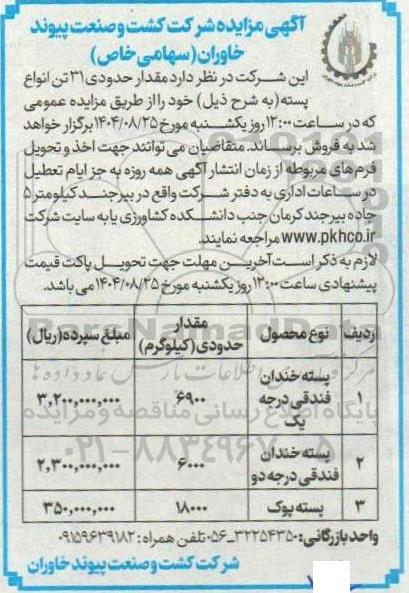 آگهی مزایده شرکت کشت و صنعت پیوند
خاوران (سهامی خاص)
این شرکت در نظر دارد مقدار حدودی ۳۱ تن انواع
پسته (به شرح ذیل) خود را از طریق مزایده عمومی
که در ساعت ۱۲:۰۰ روز یکشنبه مورخ ۱۴۰۴/۰۸/۲۵ برگزار خواهد
شد به فروش برساند. متقاضیان می توانند جهت اخذ و تحویل
فرم های مربوطه از زمان انتشار آگهی همه روزه به جز ایام تعطیل
در ساعات اداری به دفتر شرکت واقع در بیرجند کیلومتر ۵
جاده بیرجند کرمان جنب دانشکده کشاورزی یا به سایت شرکت
www.pkhco.ir مراجعه نمایند.
لازم به ذکر است آخرین مهلت جهت تحویل پاکت قیمت
پیشنهادی ساعت ۱۲:۰۰ روز یکشنبه مورخ ۱۴۰۴/۰۸/۲۵ می باشد.
ردیف نوع محصول مقدار حدودی (کیلوگرم) مبلغ سپرده (ریال)
۱ پسته خندان فندقی درجه یک ۶۹۰۰ ۳,۲۰۰,۰۰۰,۰۰۰
۲ پسته خندان فندقی درجه دو ۶۰۰۰ ۲,۳۰۰,۰۰۰,۰۰۰
۳ پسته پوک ۱۸۰۰۰ ۳۵۰,۰۰۰,۰۰۰
واحد بازرگانی: ۳۲۲۵۴۳۵۰-۰۵۶ تلفن همراه: ۰۹۱۵۹۶۳۹۱۸۲
شرکت کشت و صنعت پیوند خاوران
ParsNamadData
پایگاه اطلاع رسانی مناقصه و مزایده
۰۲۱-۸۸۳۴۹۶۷۰-۵